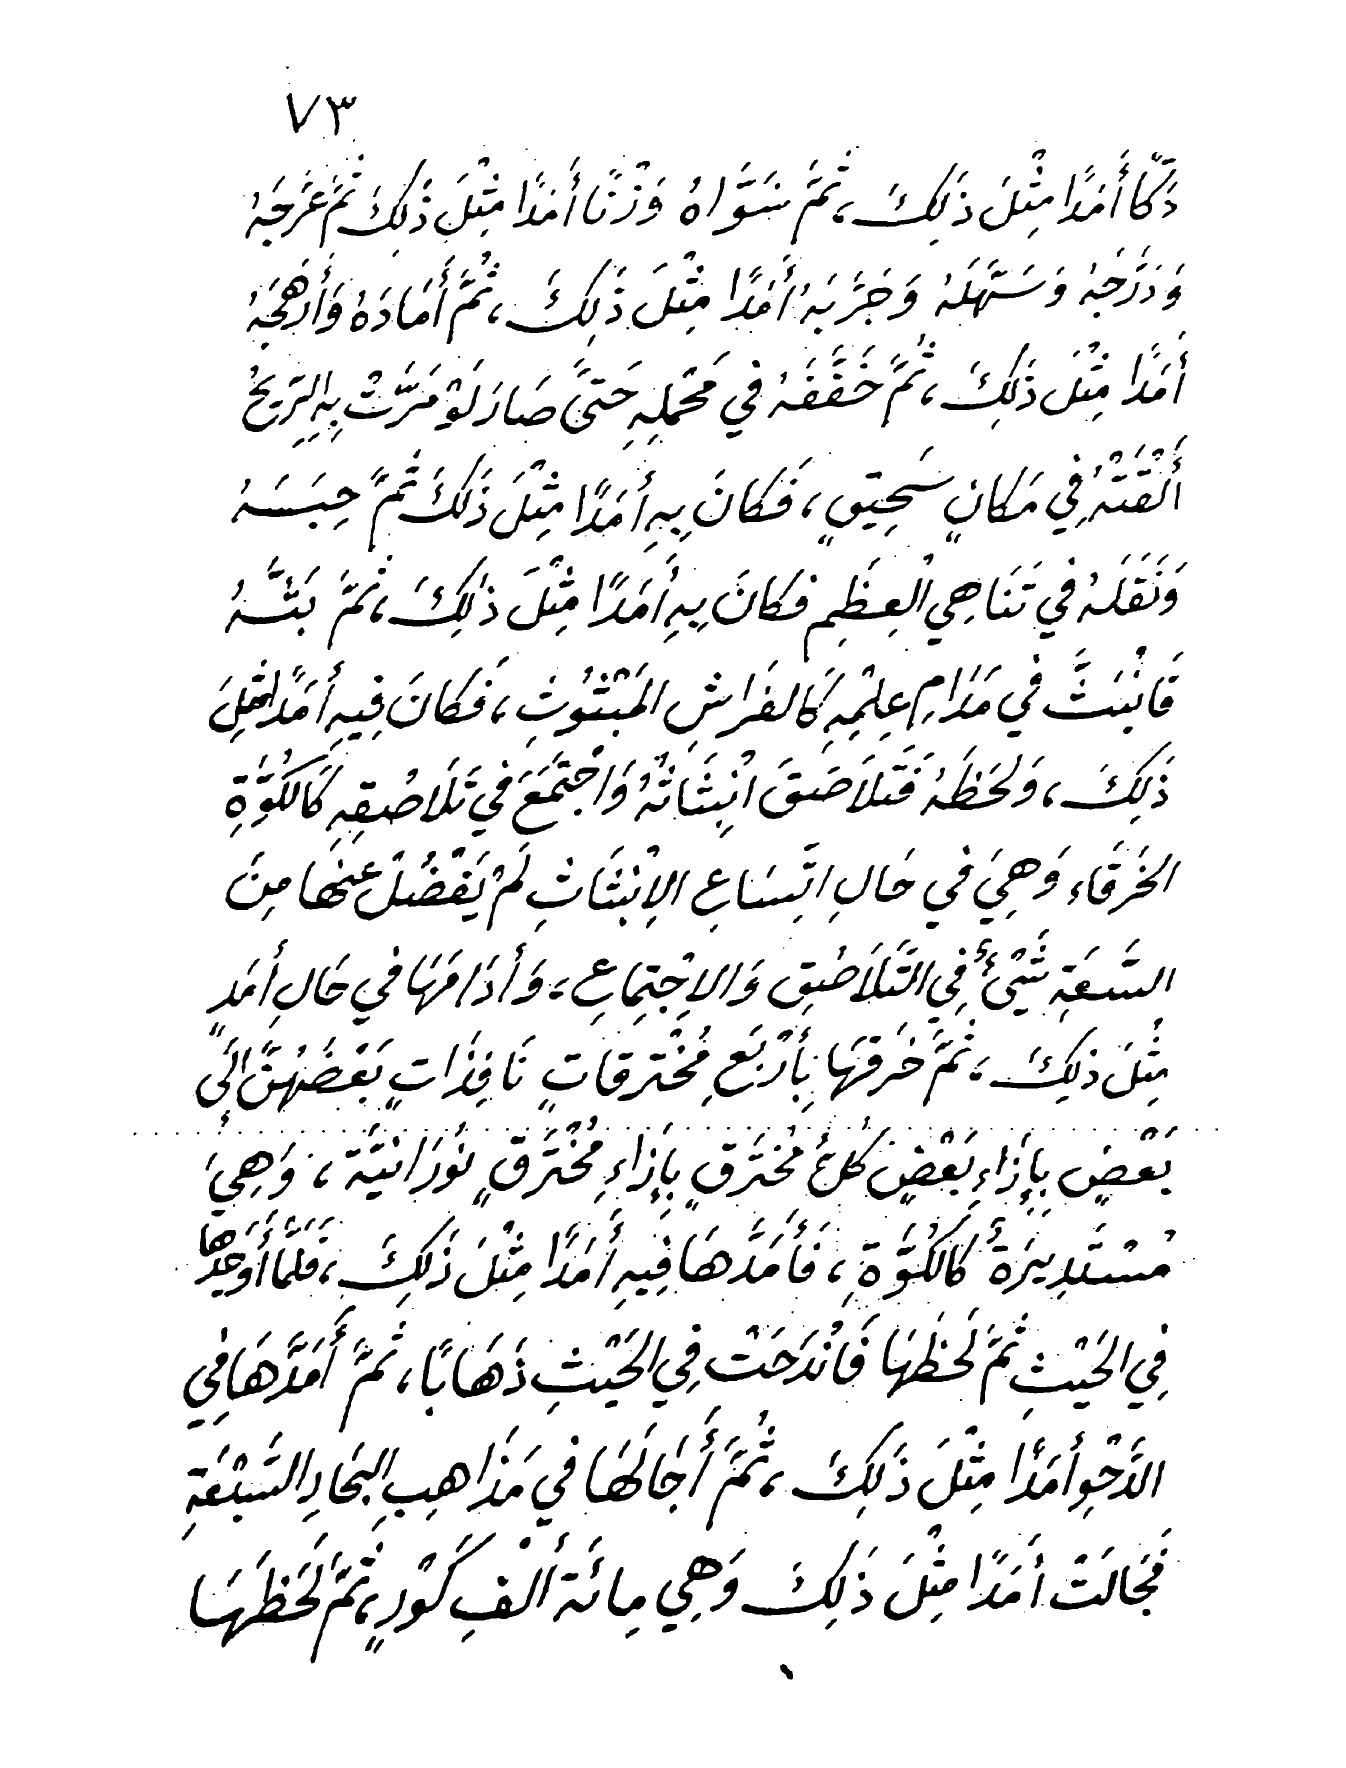 ٧٣
دَكًّا أَمَدًا مِثْلَ ذَلِكَ، ثُمَّ سَوَّاهُ وَزْنًا أَمَدًا مِثْلَ ذَلِكَ ثُمَّ عَرَّجَهُ
وَدَرَّجَهُ وَسَهَّلَهُ وَجَرَّبَهُ أَمَدًا مِثْلَ ذَلِكَ، ثُمَّ أَمَادَهُ وَأَرْهَجَهُ
أَمَدًا مِثْلَ ذَلِكَ، ثُمَّ خَفَّفَهُ فِي مَحْمَلِهِ حَتَّى صَارَ لَوْ مَرَّتْ بِهِ الرِّيحُ
أَلْقَتْهُ فِي مَكَانٍ سَحِيقٍ، فَكَانَ بِهِ أَمَدًا مِثْلَ ذَلِكَ ثُمَّ حَبَسَهُ
وَنَقَلَهُ فِي تَنَاهِي الْعِظَمِ فَكَانَ بِهِ أَمَدًا مِثْلَ ذَلِكَ، ثُمَّ بَثَّهُ
فَانْبَثَّ فِي مَدَامِ عِلْمِهِ كَالفَرَاشِ المَبْثُوثِ، فَكَانَ فِيهِ أَمَدًا مِثْلَ
ذَلِكَ، وَلَحَظَهُ فَتَلَاصَقَ انْبِثَاثُهُ وَاجْتَمَعَ فِي تَلَاصُقِهِ كَالكُوَّةِ
الخَرْقَاءِ وَهِيَ فِي حَالِ اتِّسَاعِ الِانْبِثَاثِ لَمْ يَفْضُلْ عَنْهَا مِنَ
السَّعَةِ شَيْئٌ فِي التَّلَاصُقِ وَالاِجْتِمَاعِ، وَأَدَامَهَا فِي حَالِ أَمَدٍ
مِثْلَ ذَلِكَ، ثُمَّ خَرَقَهَا بِأَرْبَعِ مُخْتَرَقَاتٍ نَافِذَاتٍ بَعْضُهُنَّ إِلَى
بَعْضٍ بِإِزَاءِ بَعْضٍ كُلُّ مُخْتَرَقٍ بِإِزَاءِ مُخْتَرَقٍ نُورَانِيَّة، وَهِيَ
مُسْتَدِيرَةٌ كَالكُوَّةِ، فَأَمَدَّهَا فِيهِ أَمَدًا مِثْلَ ذَلِكَ، فَلَمَّا أَوْجَدَهَا
فِي الحَيْثِ ثُمَّ لَحَظَهَا فَانْدَحَتْ فِي الحَيْثِ ذَهَابًا، ثُمَّ أَمَدَّهَا فِي
الدَّحْوِ أَمَدًا مِثْلَ ذَلِكَ، ثُمَّ أَجَالَهَا فِي مَذَاهِبِ البِحَارِ السَّبْعَةِ
فَجَالَتْ أَمَدًا مِثْلَ ذَلِكَ وَهِيَ مِائَة أَلْفِ كَوْرٍ، ثُمَّ لَحَظَهَا